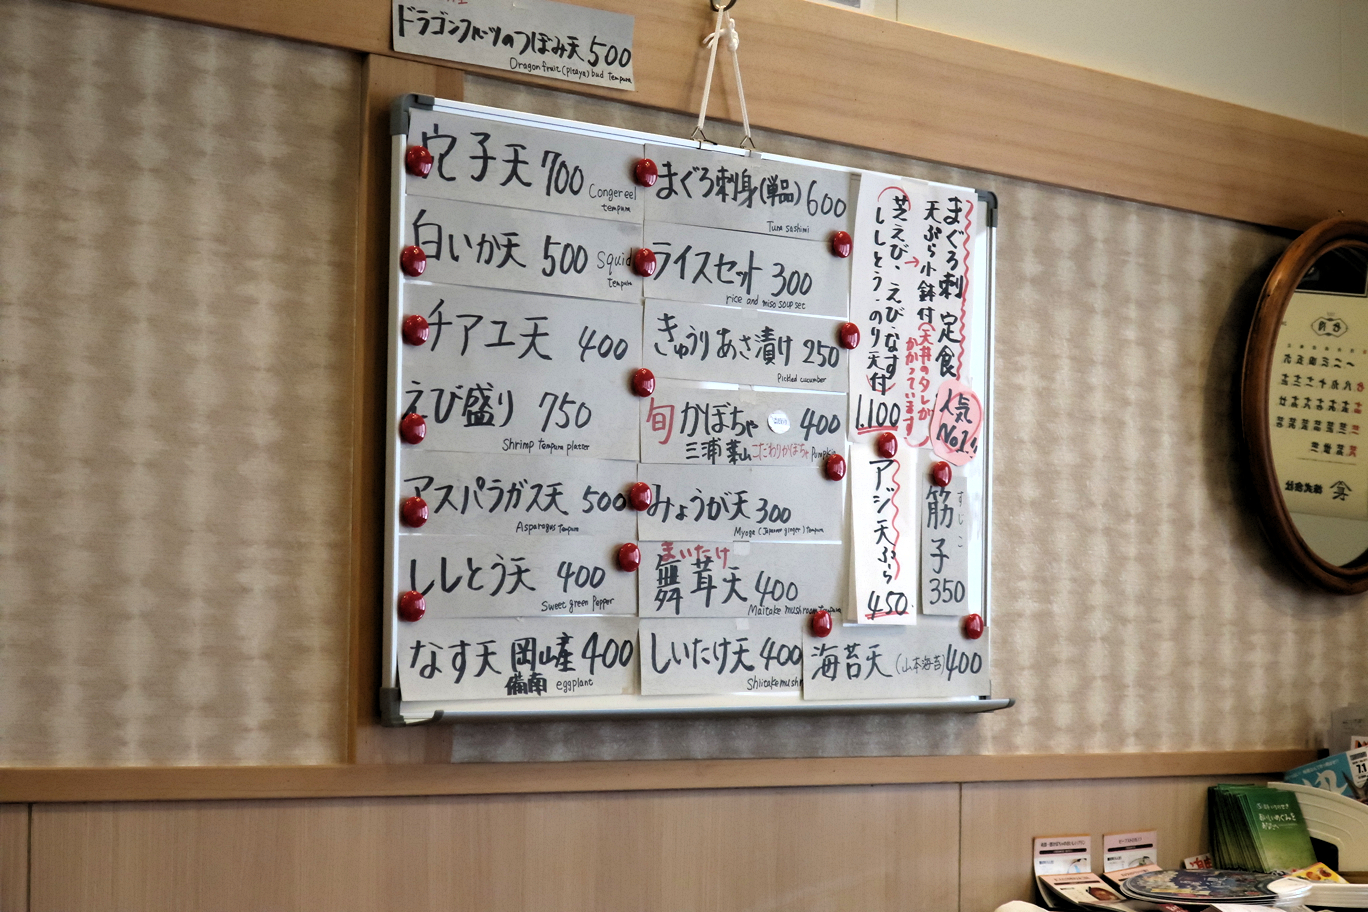 ドラゴンフルーツのつぼみ天 500
Dragonfruit (pitaya) bud Tempura
穴子天 700
Conger eel
tempura
白いか天 500
Squid
tempura
チアユ天 400
えび盛り 750
Shrimp tempura platter
アスパラガス天 500
Asparagus tempura
ししとう天 400
Sweet green Pepper
なす天 岡山産 400
備南 eggplant
まぐろ刺身(単品) 600
Tuna sashimi
ライスセット 300
rice and miso soup set
きゅうりあさ漬け 250
Pickled cucumber
旬 かぼちゃ 400
三浦 葉山 こだわりかぼちゃ Pumpkin
みょうが天 300
Myoga (Japanese ginger) tempura
まいたけ
舞茸天 400
Maitake mushroom tempura
しいたけ天 400
Shiitake mush
まぐろ刺 定食
人気
No1!!
天ぷら小鉢付
(天丼のタレが
かかっています)
(芝えび、えび、なす
ししとう、のり天付)
1,100
アジ天ぷら
450
筋子
すじこ
350
海苔天 (山本海苔) 400